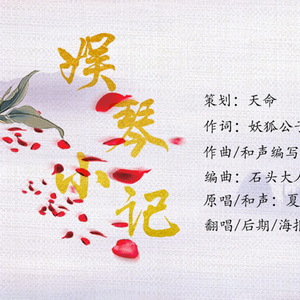 娱琴小记
策划：天命
作词：妖狐公
作曲/和声编写
编曲：石头大
原唱/和声：夏
翻唱/后期/海报